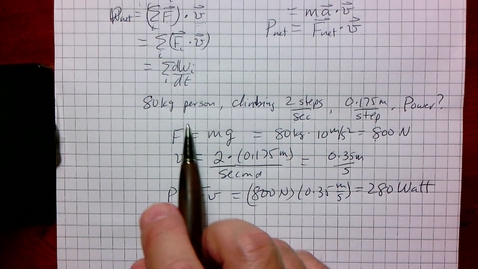 P_net = (∑_i F⃗_i) · v⃗
= ∑_i (F⃗_i · v⃗)
= ∑_i dw_i/dt
= m a⃗ · v⃗
P_net = F⃗_net · v⃗
80kg person, climbing 2 steps/sec, 0.175m/step. Power?
F = mg = 80kg · 10 m/s² = 800 N
= 2 · (0.175m)/second = 0.35m/s
P v = (800N)(0.35 m/s) = 280 Watt